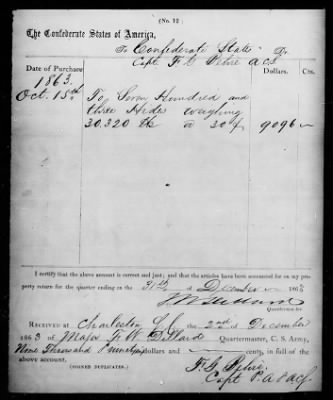 (No. 12)
The Confederate States of America,
To Confederate State Dr
Capt F. G. ACS
Date of Purchase Dollars. Cts.
1863
Oct. 15th To Seven Hundred and
three Hides weighing
30.320 lbs a 30¢ 9096 —
I certify that the above account is correct and just; and that the articles have been accounted for on my
property return for the quarter ending on the 31st of December 186
Quartermaster
Received at Charleston S.C. the 2nd of December
1863 of Major F. W. Dillard Quartermaster, C. S. Army,
Nine Thousand & ninety six dollars and — cents, in full of the
above account.
(SIGNED DUPLICATES.) F. G.
Capt